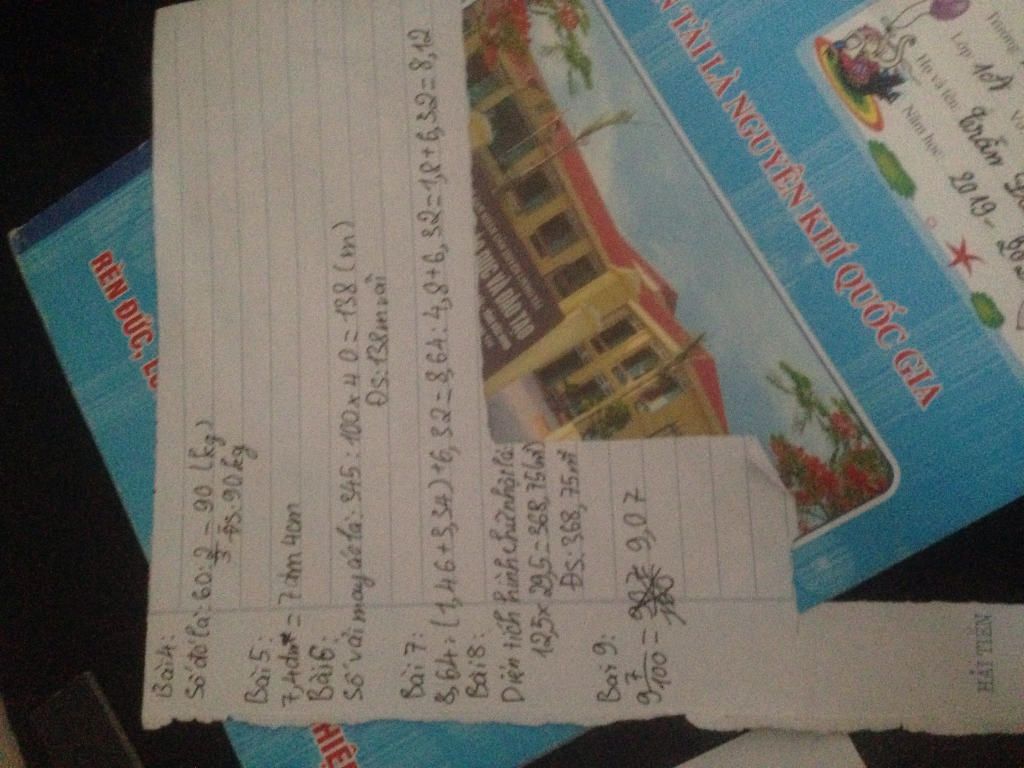 Bài 4:
Số đó là: 60 : 2/3 = 90 (kg)
ĐS: 90 kg
Bài 5:
7,4dm = 7dm 4cm
Bài 6:
Số vải may áo là: 345 : 100 x 40 = 138 (m)
ĐS: 138m vải
Bài 7:
8,64 : (1,46 + 3,34) + 6,32 = 8,64 : 4,8 + 6,32 = 1,8 + 6,32 = 8,12
Bài 8:
Diện tích hình chữ nhật là:
12,5 x 29,5 = 368,75 (m²)
ĐS: 368,75 m²
Bài 9:
9 7/100 = 9,07
HẢI TIẾN
RÈN ĐỨC,
TÀI LÀ NGUYÊN KHÍ QUỐC GIA
VÀ ĐÀO TẠO
Trường
Lớp 1A
Họ và tên: Trần
Năm học: 2019 -